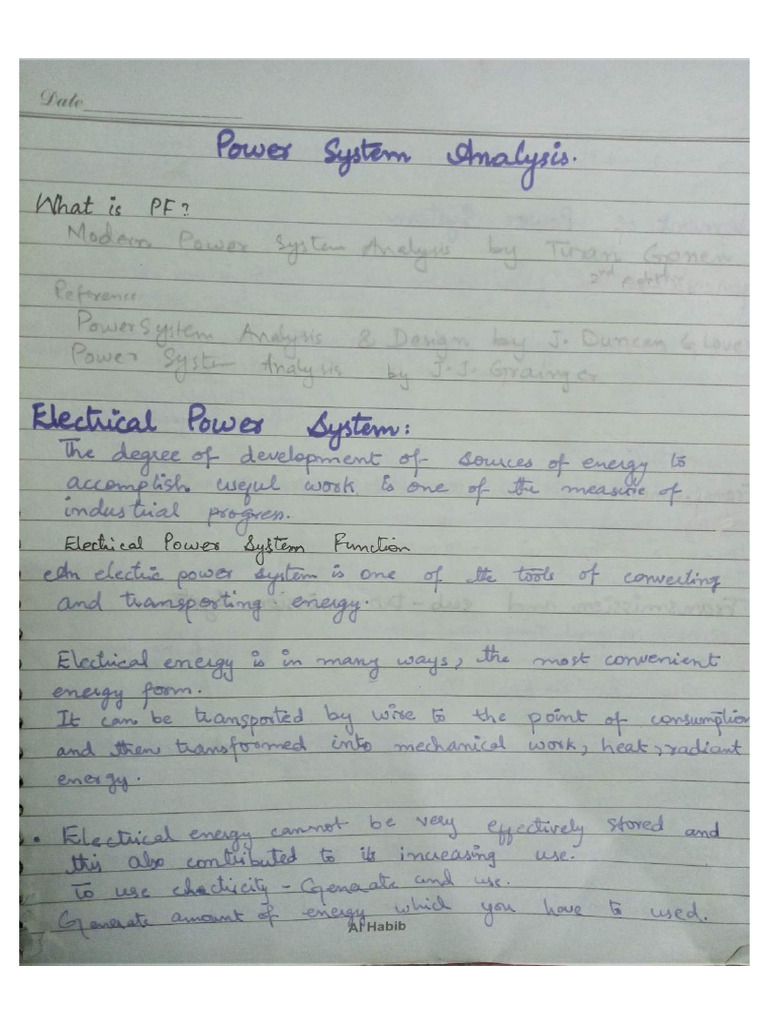 Date
Power System Analysis.
What is PF?
Modern Power System Analysis by Turan Gonen
2nd
Reference
Power System Analysis & Design by J. Duncan Glover
Power System Analysis by J.J. Grainger
Electrical Power System:
The degree of development of sources of energy to
accomplish useful work is one of the measure of
industrial progress.
Electrical Power System Function
An electric power system is one of the tools of converting
and transporting energy.
Electrical energy is in many ways, the most convenient
energy form.
It can be transported by wire to the point of consumption
and then transformed into mechanical work, heat, radiant
energy.
• Electrical energy cannot be very effectively stored and
this also contributed to its increasing use.
To use electricity - Generate and use.
Generate amount of energy which you have to used.
Al Habib